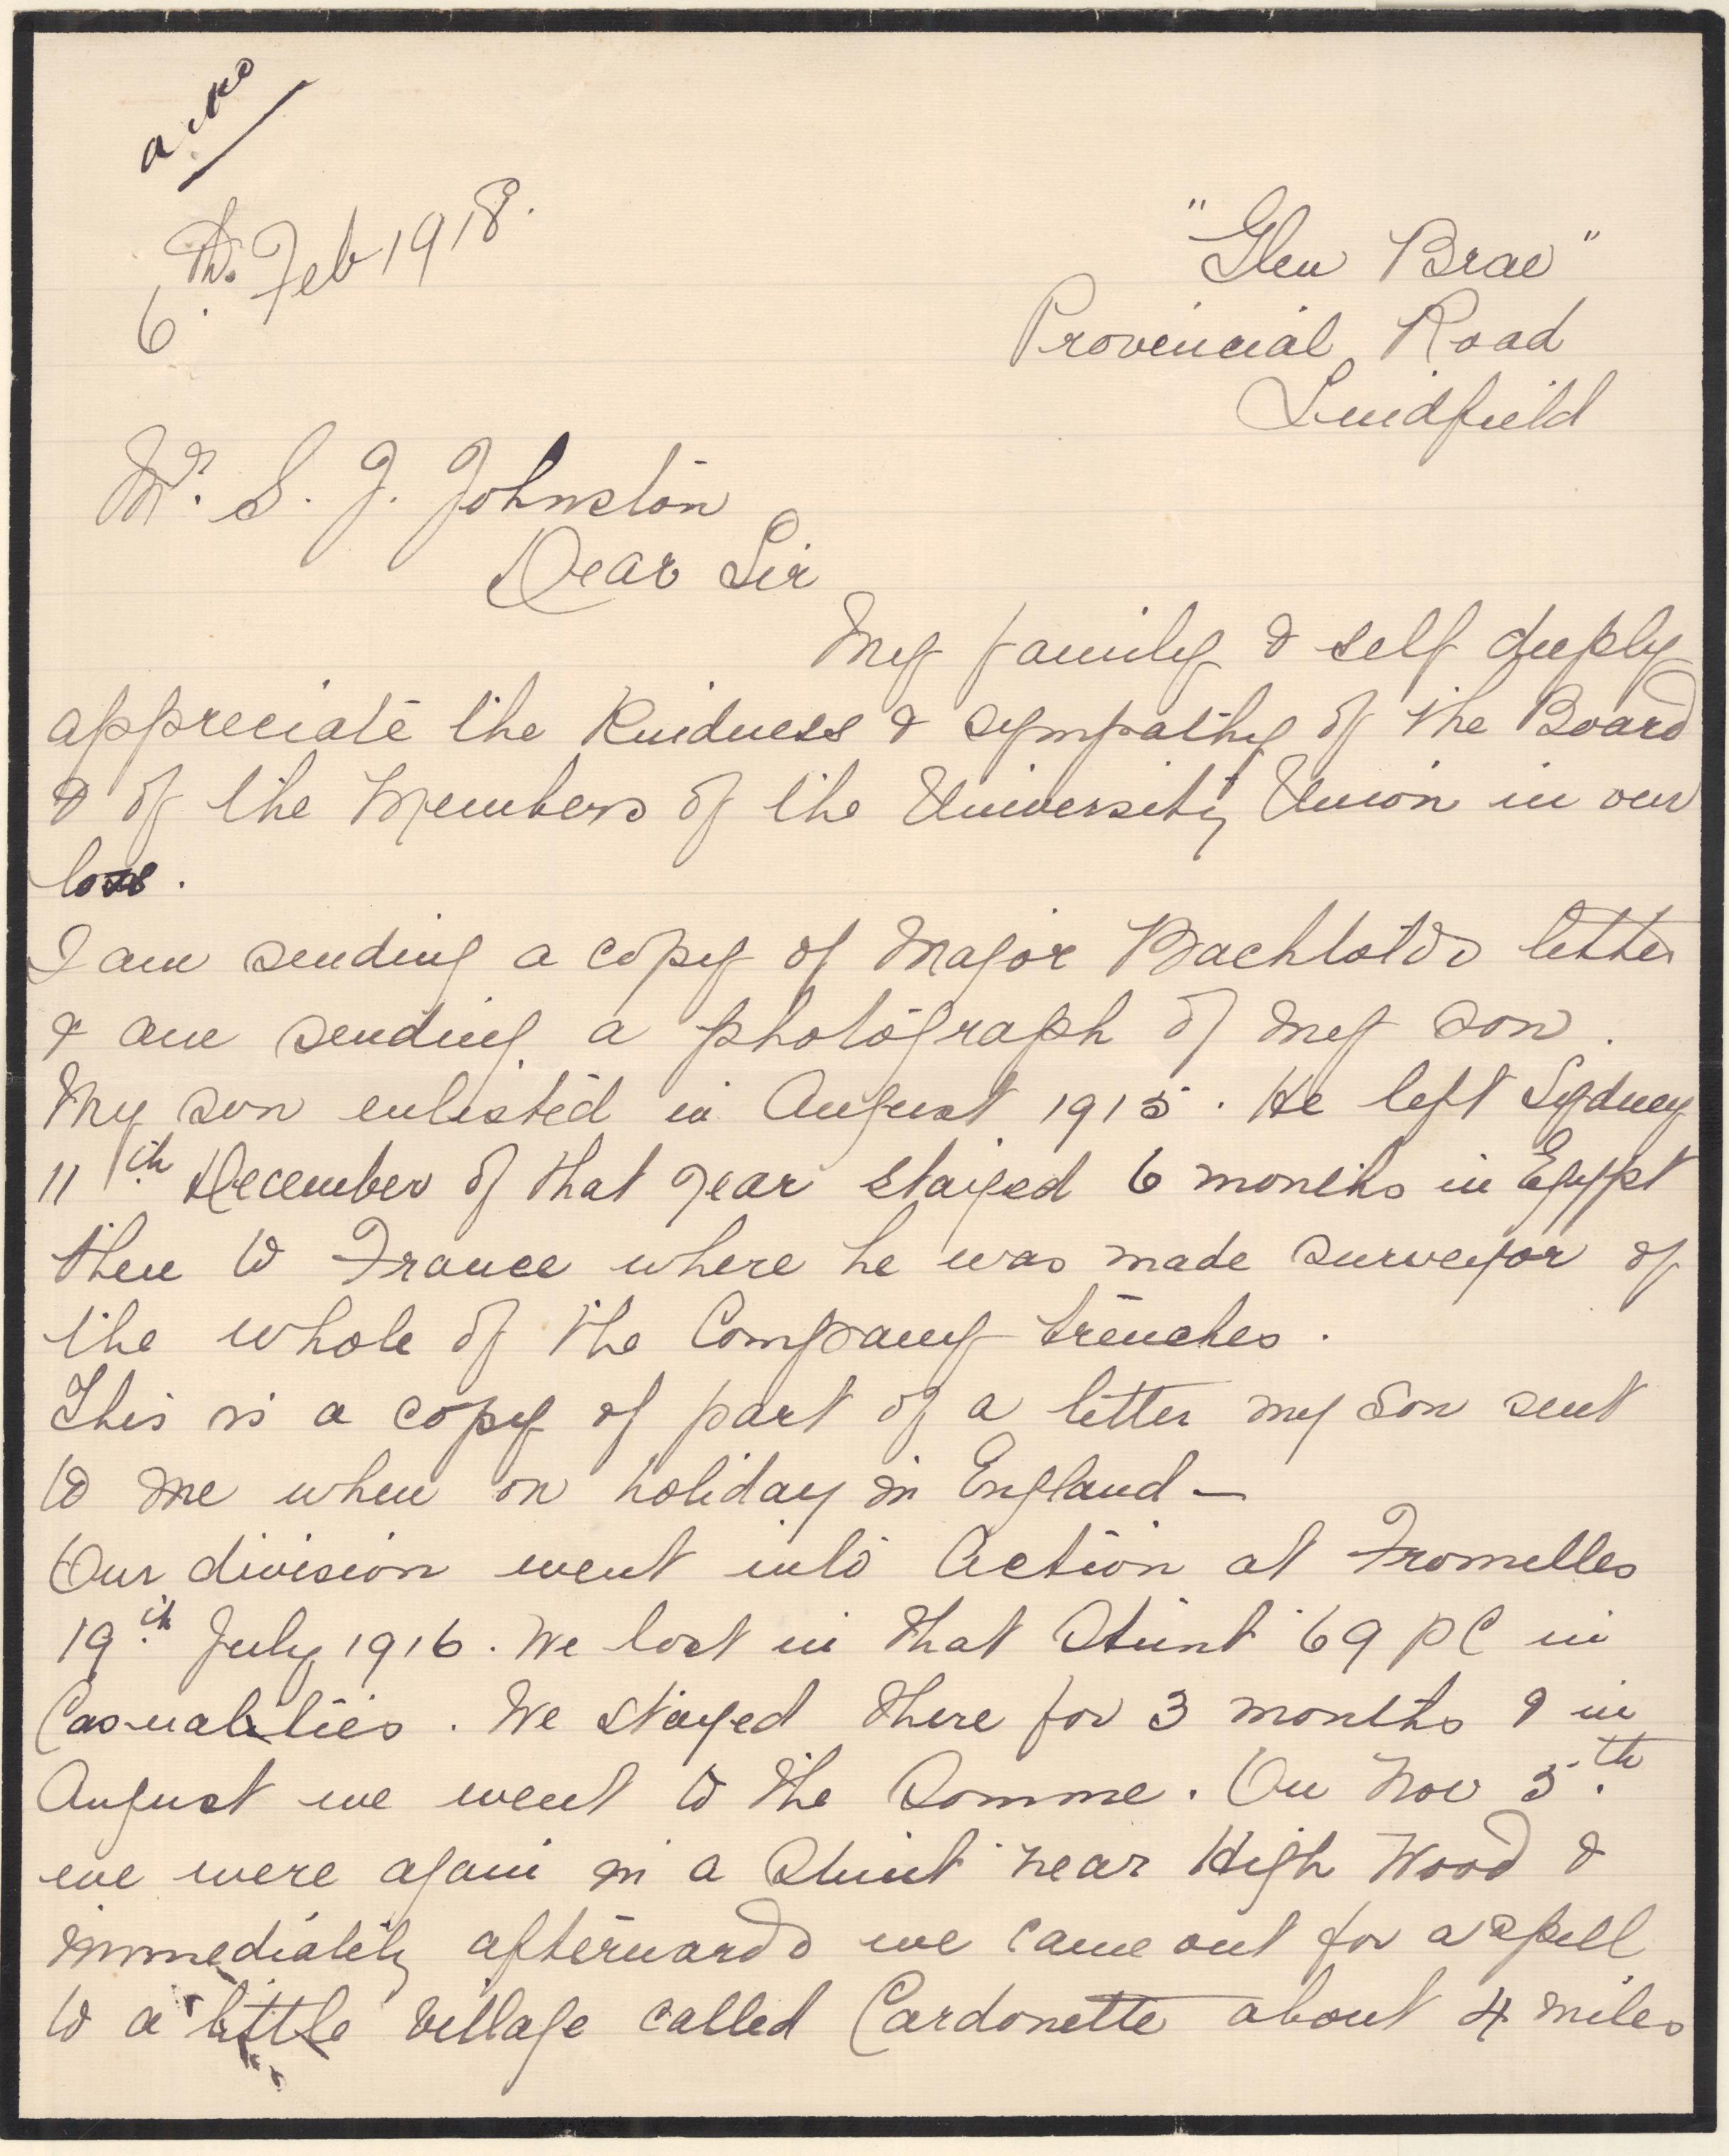 6th. Feb 1918.
"Glen Brae"
Provincial Road
Lindfield
Mr. S. J. Johnston
Dear Sir
My family & self deeply
appreciate the kindness & sympathy of the Board
& of the Members of the University Union in our
loss.
I am sending a copy of Major Bachtolds letter
& am sending a photograph of my son.
My son enlisted in August 1915. He left Sydney
11th December of that year stayed 6 months in Egypt
then to France where he was made surveyor of
the whole of the Company trenches.
This is a copy of part of a letter my son sent
to me when on holiday in England —
Our division went into action at Fromelles
19th July 1916. We lost in that Stunt 69 pC in
Casualities. We stayed there for 3 months & in
August we went to the Somme. On Nov 5th.
we were again in a Stunt near High Wood &
immediately afterwards we came out for a spell
to a little village called Cardonette about 4 miles